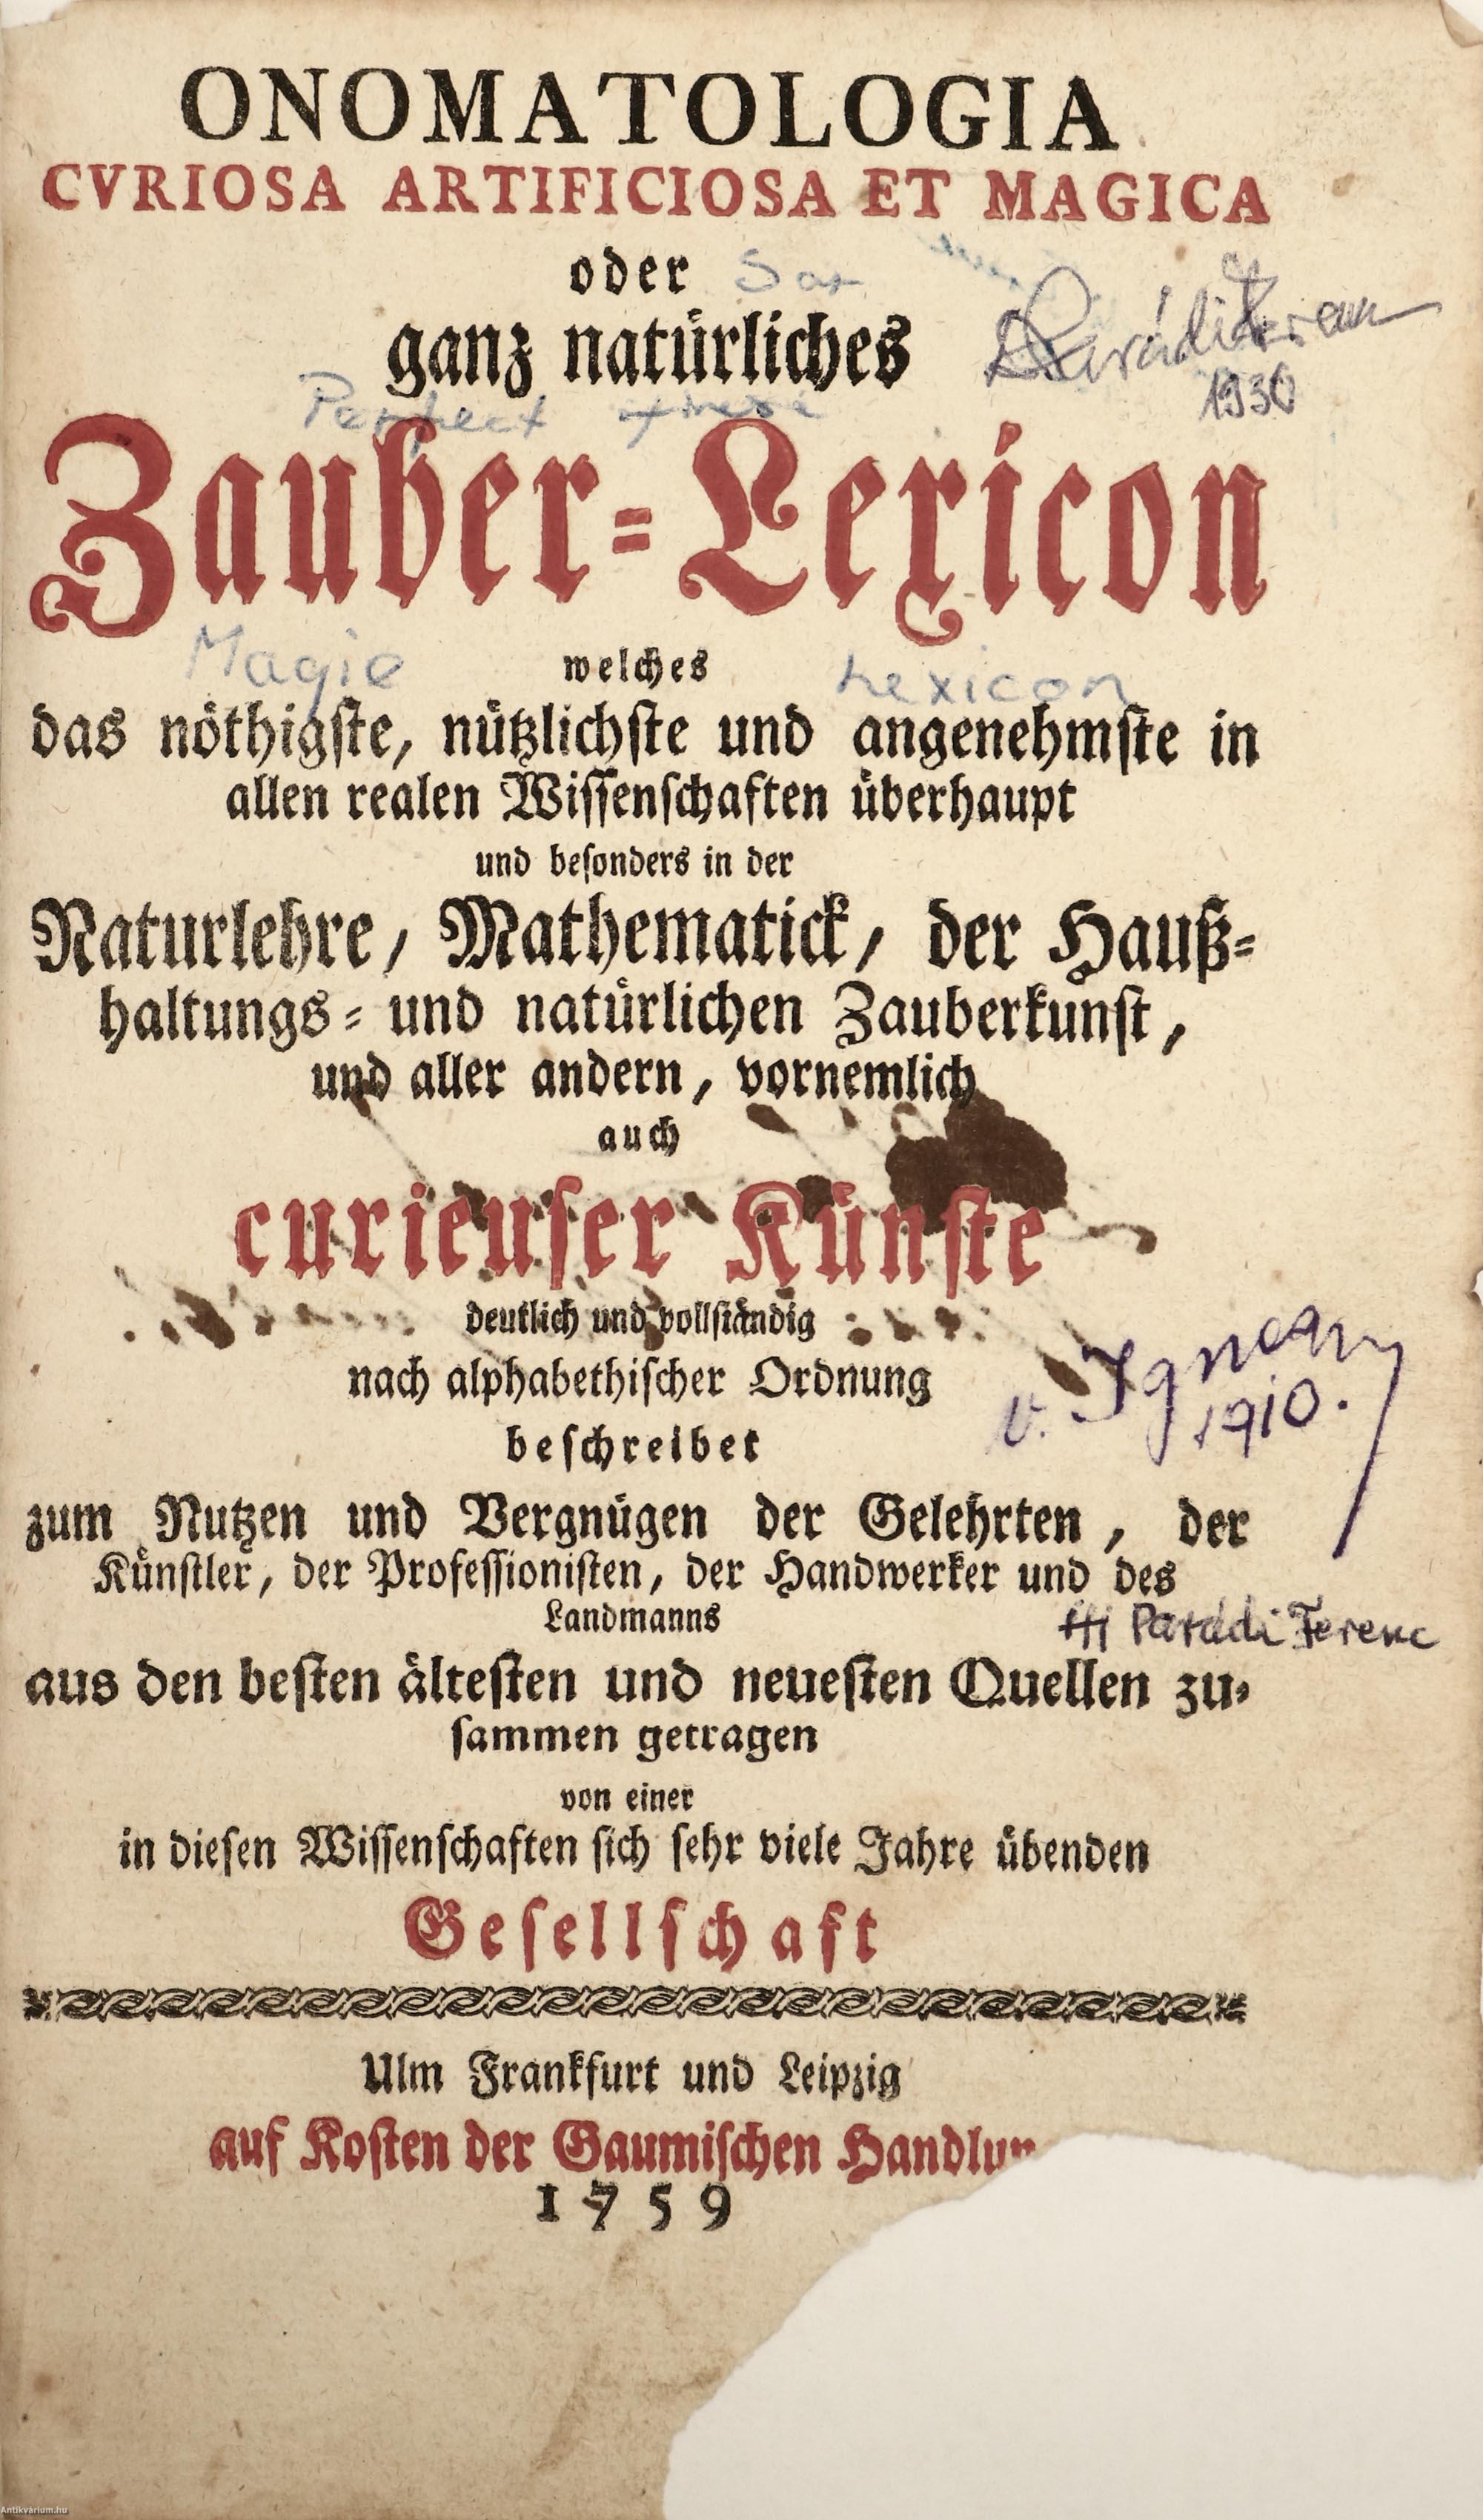 ONOMATOLOGIA
CVRIOSA ARTIFICIOSA ET MAGICA
oder
ganz natürliches
Parádi Ferenc
1930
Perfect
Zauber-Lexicon
Magie welches Lexicon
das nöthigſte, nützlichſte und angenehmſte in
allen realen Wiſſenſchaften überhaupt
und beſonders in der
Naturlehre, Mathematick, der Hauß-
haltungs- und natürlichen Zauberkunſt,
und aller andern, vornemlich
auch
curieuſer Künſte
deutlich und vollſtändig
nach alphabethiſcher Ordnung
beſchreibet
v.
1910.
zum Nutzen und Vergnügen der Gelehrten, der
Künſtler, der Profeſſioniſten, der Handwerker und des
Landmanns
ifj Parádi Ferenc
aus den beſten älteſten und neueſten Quellen zu-
ſammen getragen
von einer
in dieſen Wiſſenſchaften ſich ſehr viele Jahre übenden
Geſellſchaft
Ulm Frankfurt und Leipzig
auf Koſten der Gaumiſchen Handlun
1759
Antikvárium.hu